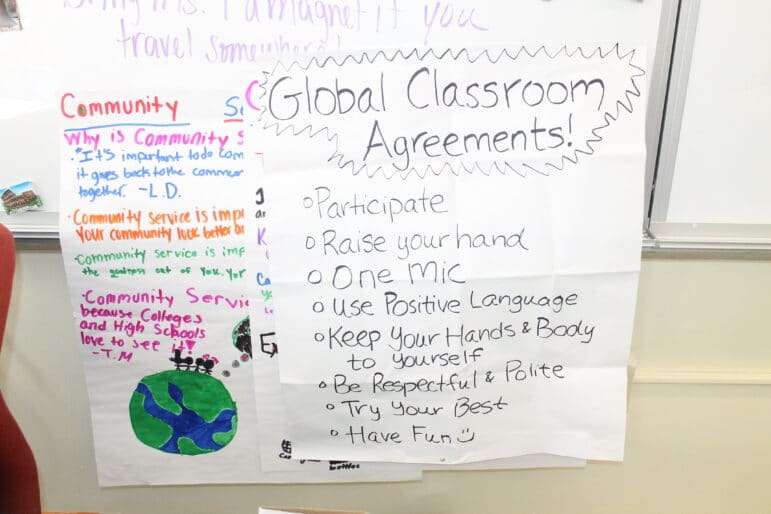 I a magnet if you
travel somewhere!
Global Classroom
Agreements!
Participate
Raise your hand
One Mic
Use Positive Language
Keep Your Hands & Body
to yourself
Be Respectful & Polite
Try Your Best
Have Fun
Community
Why is Community
"It's important to do
it gives back to the
together. -L.D.
Community service is
your community look better
Community service is
the goodness out of you,
Community
because Colleges
and High Schools
love to see it!
-T.M
bottles